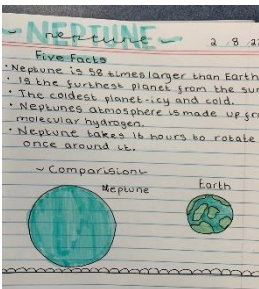 NEPTUNE
neptune
2-8-22
Five Facts
• Neptune is 58 times larger than Earth
• Is the furthest planet from the sun
• The coldest planet-icy and cold.
• Neptunes atmosphere is made up fr
molecular hydrogen.
• Neptune takes 16 hours to rotate
once around it.
~ Comparision ~
Neptune
Earth